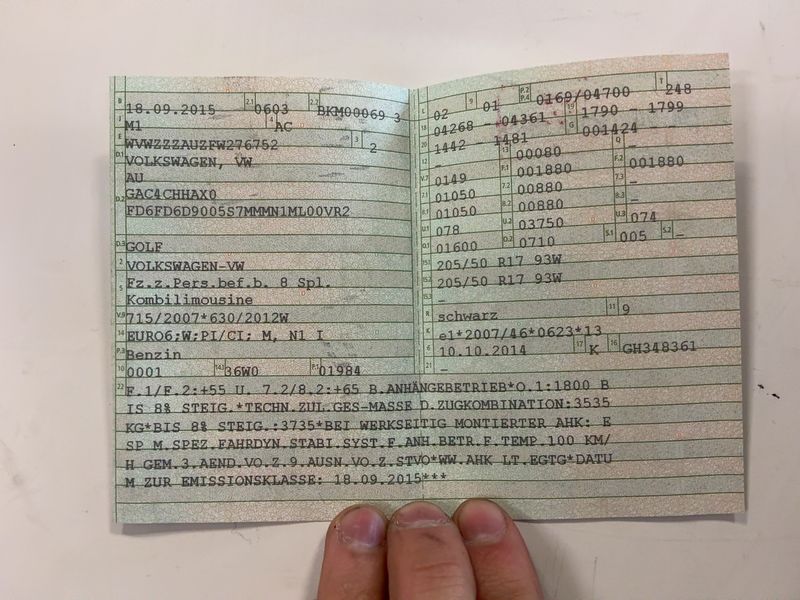 B 18.09.2015 2.1 0603 2.2 BKM00069 3
J M1 4 AC
E WVWZZZAUZFW276752 3 2
D.1 VOLKSWAGEN, VW
AU
D.2 GAC4CHHAX0
FD6FD6D9005S7MMMN1ML00VR2
D.3 GOLF
2 VOLKSWAGEN-VW
5 Fz.z.Pers.bef.b. 8 Spl.
Kombilimousine
V.9 715/2007*630/2012W
14 EURO6;W;PI/CI; M, N1 I
P.3 Benzin
10 0001 14.1 36W0 P.1 01984
L 02 9 01 P.2 P.4 0169/04700 T 248
18 04268 - 04361 19 1790 - 1799
20 1442 - 1481 G 001424 - -
12 - 13 00080 Q -
V.7 0149 F.1 001880 F.2 001880
7.1 01050 7.2 00880 7.3 -
8.1 01050 8.2 00880 8.3 -
U.1 078 U.2 03750 U.3 074
O.1 01600 O.2 0710 S.1 005 S.2 -
15.1 205/50 R17 93W
15.2 205/50 R17 93W
15.3 -
R schwarz 11 9
K e1*2007/46*0623*13
6 10.10.2014 17 K 16 GH348361
21 -
22 F.1/F.2:+55 U. 7.2/8.2:+65 B.ANHÄNGEBETRIEB*O.1:1800 B
IS 8% STEIG.*TECHN.ZUL.GES-MASSE D.ZUGKOMBINATION:3535
KG*BIS 8% STEIG.:3735*BEI WERKSEITIG MONTIERTER AHK: E
SP M.SPEZ.FAHRDYN.STABI.SYST.F.ANH.BETR.F.TEMP.100 KM/
H GEM.3.AEND.VO.Z.9.AUSN.VO.Z.STVO*WW.AHK LT.EGTG*DATU
M ZUR EMISSIONSKLASSE: 18.09.2015***